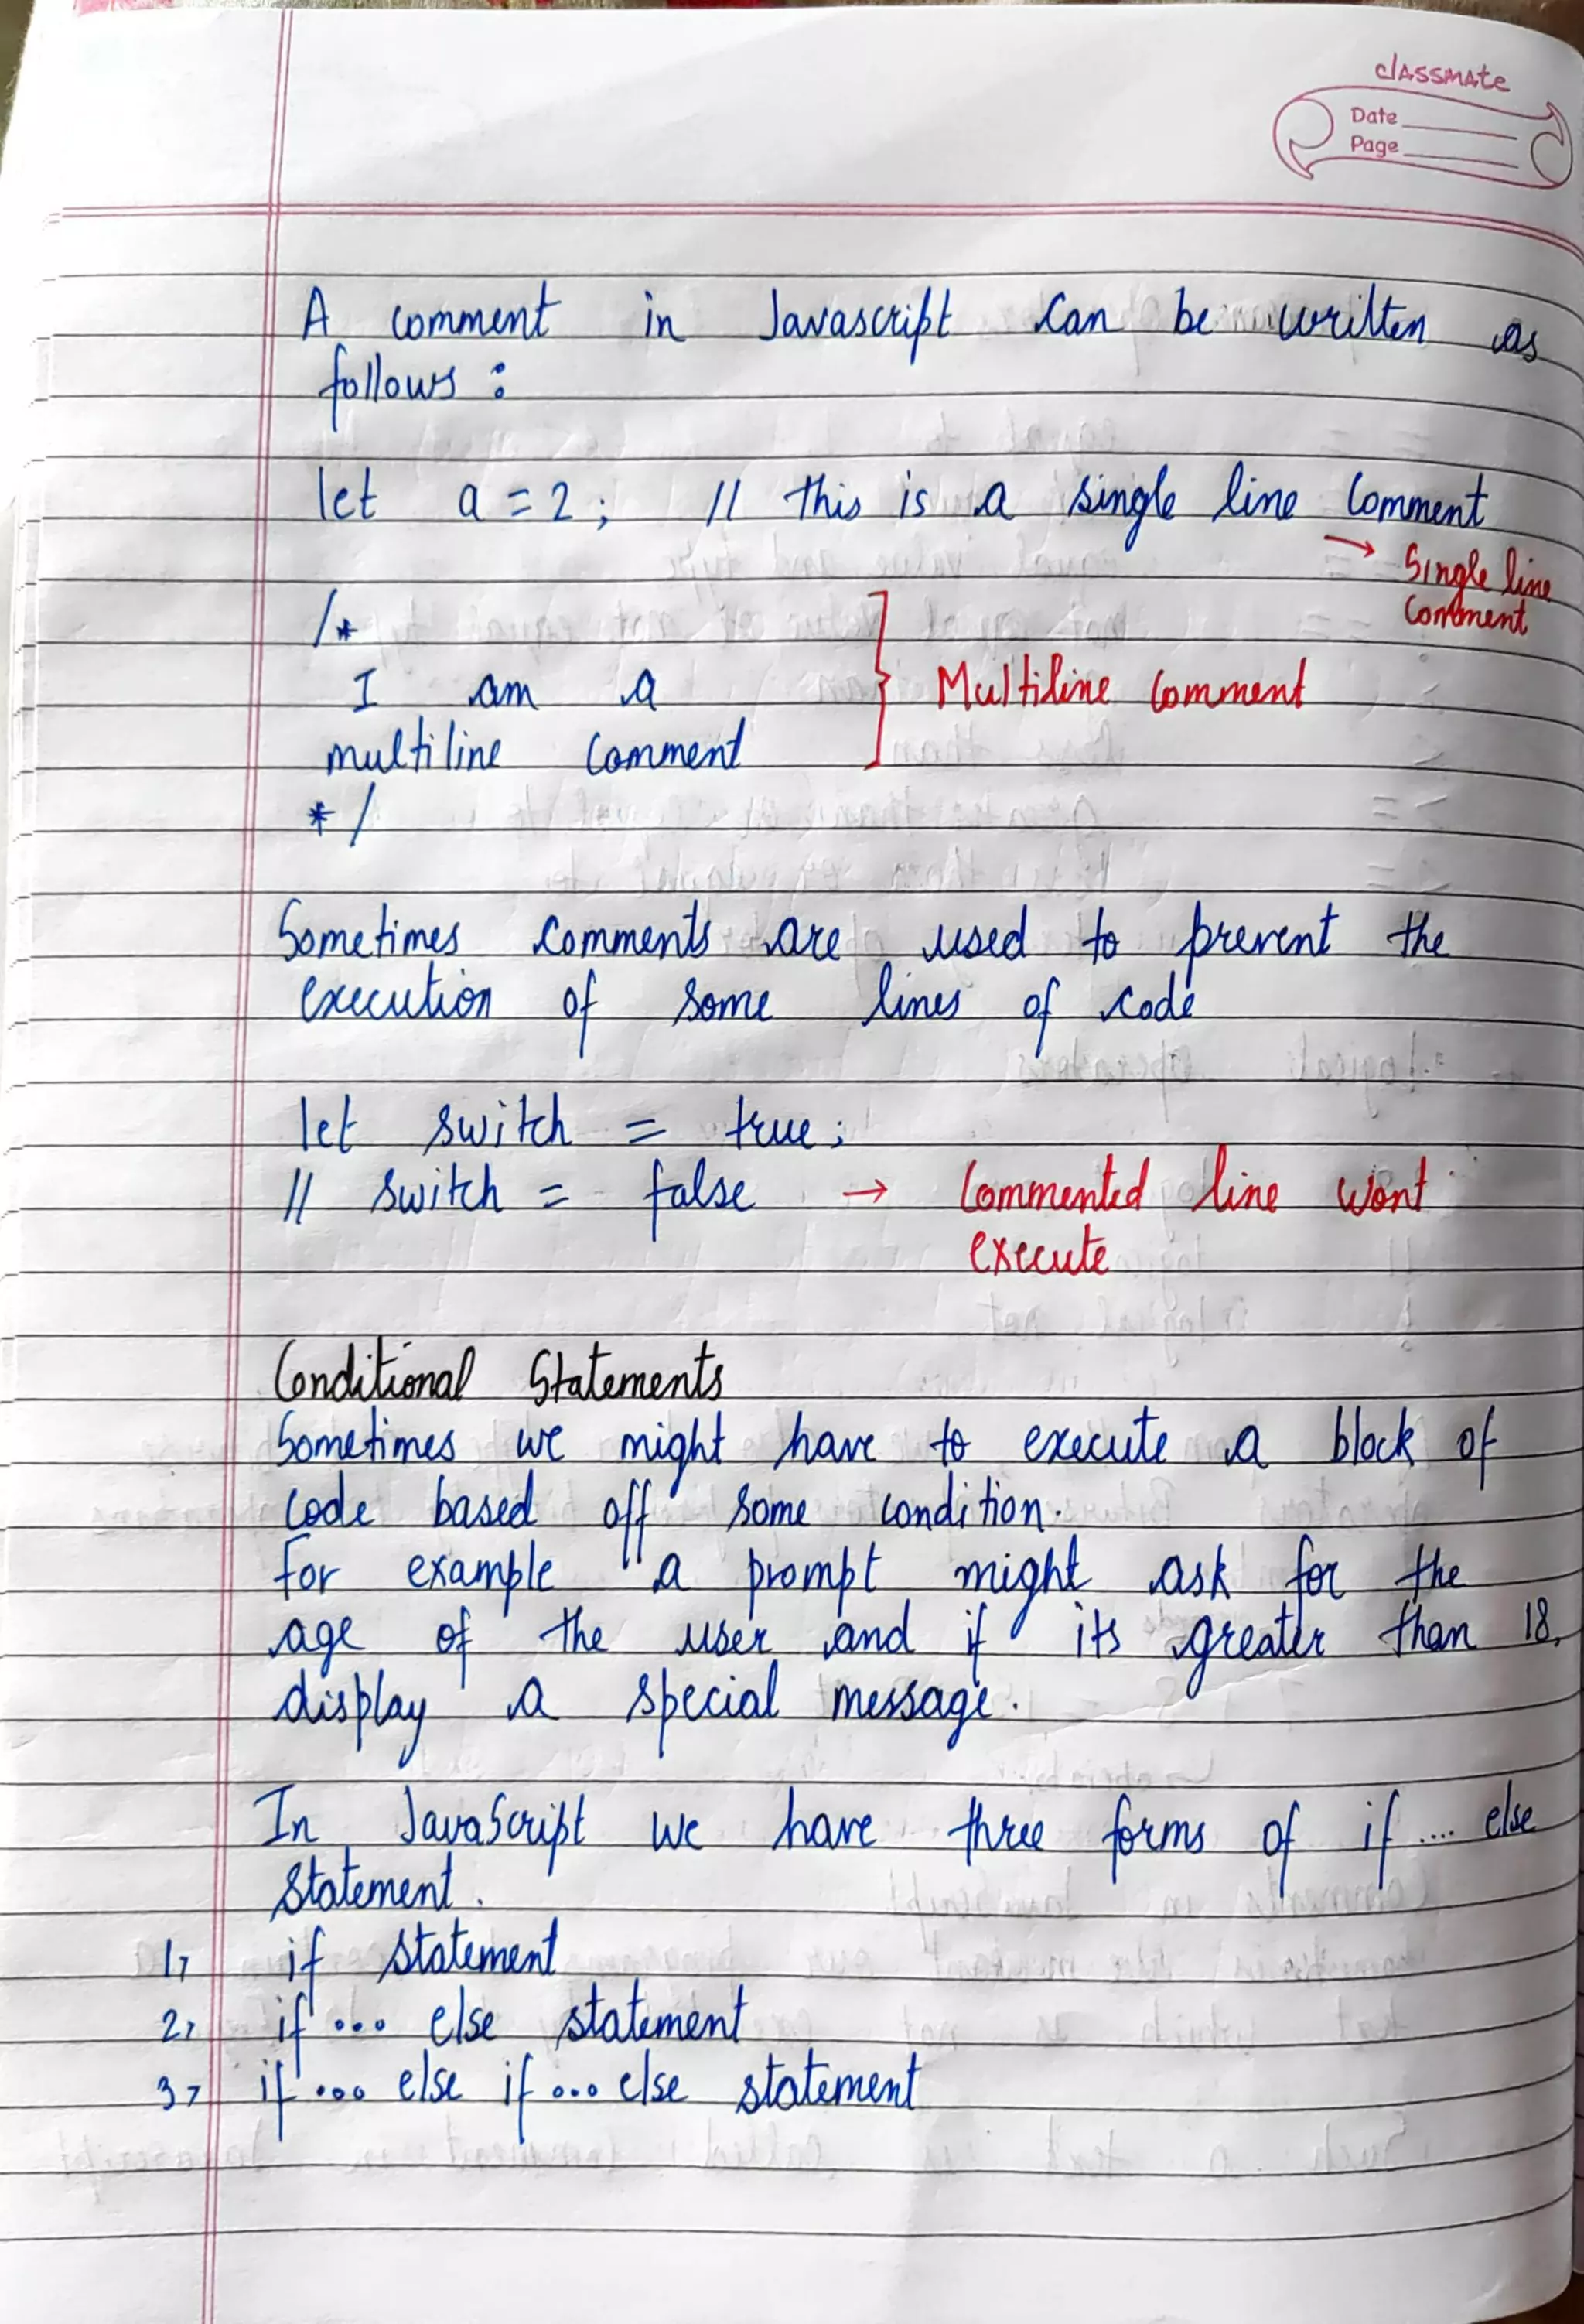 classmate
Date
Page
A comment in Javascript can be written as
follows :
let a = 2 ; // this is a single line comment
→ Single line
comment
/*
I am a
multiline comment
*/
} Multiline comment
Sometimes comments are used to prevent the
execution of some lines of code
let switch = true ;
// switch = false → Commented line wont
execute
Conditional Statements
Sometimes we might have to execute a block of
code based off some condition.
for example a prompt might ask for the
age of the user and if its greater than 18,
display a special message.
In JavaScript we have three forms of if .... else
statement.
1> if statement
2> if ... else statement
3> if ... else if ... else statement